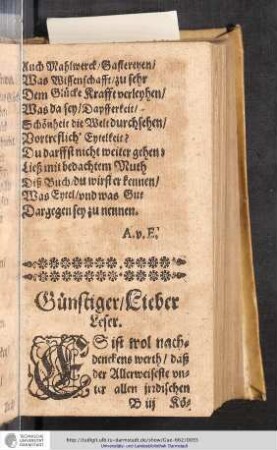 Auch Mahlwerck/Gastereyen/
Was Wissenschafft/zu sehr
Dem Glücke Krafft verleyhen/
Was da sey/Dapfferkeit/
Schönheit die Welt durchsehen/
Vortreflich' Eytelkeit?
Du darffst nicht weiter gehen:
Ließ mit bedachtem Muth
Diß Buch/du wirst erkennen/
Was Eytel/vnd was Gut
Dargegen sey zu nennen.
A. v. E.
Günstiger/Lieber
Leser.
ES ist wol nach-
denckens werth/daß
der Allerweiseste vn-
ter allen irrdischen
B iij Kö-
http://tudigit.ulb.tu-darmstadt.de/show/Gue-662/0055
Universitäts- und Landesbibliothek Darmstadt